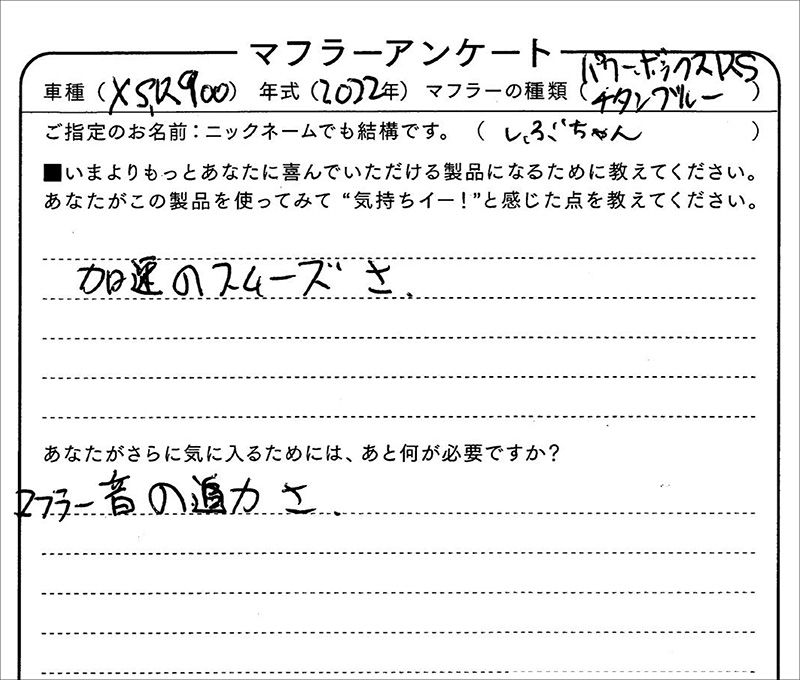 マフラーアンケート
車種（XSR900）年式（2022年）マフラーの種類（パワーボックスRS チタンブルー）
ご指定のお名前：ニックネームでも結構です。（しぶちゃん）
■いまよりもっとあなたに喜んでいただける製品になるために教えてください。
あなたがこの製品を使ってみて“気持ちイー！”と感じた点を教えてください。
加速のスムーズさ.
あなたがさらに気に入るためには、あと何が必要ですか？
マフラー音の迫力さ.